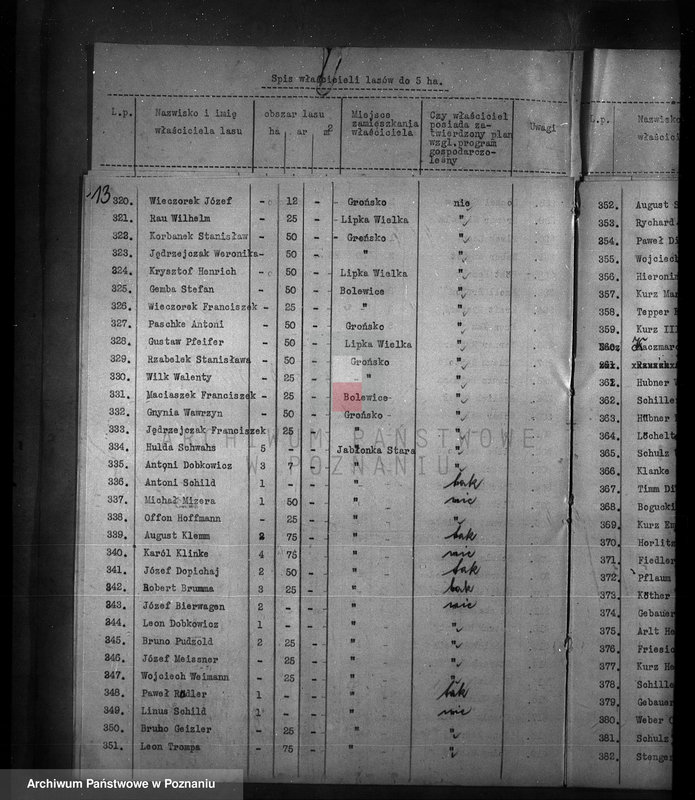 Spis właścicieli lasów do 5 ha.
L.p. Nazwisko i imię właściciela lasu obszar lasu ha ar m2 Miejsce zamieszkania właściciela Czy właściciel posiada zatwierdzony plan wzgl.program gospodarczo-leśny Uwagi
13
320. Wieczorek Józef - 12 - Grońsko nie
321. Rau Wilhelm - 25 - Lipka Wielka "
322. Korbanek Stanisław - 50 - Grońsko "
323. Jędrzejczak Weronika - 50 - " "
324. Krysztof Henrich - 50 - Lipka Wielka "
325. Gemba Stefan - 50 - Bolewice "
326. Wieczorek Franciszek - 25 - " "
327. Paschke Antoni - 50 - Grońsko "
328. Gustaw Pfeifer - 50 - Lipka Wielka "
329. Rzabelek Stanisława - 50 - Grońsko "
330. Wilk Walenty - 25 - " "
331. Maciaszek Franciszek - 25 - Bolewice "
332. Gnynia Wawrzyn - 50 - Grońsko "
333. Jędrzejczak Franciszek - 25 - " "
334. Hulda Schwahs 5 - - Jabłonka Stara "
335. Antoni Dobkowicz 3 7 - " "
336. Antoni Schild 1 - - " tak
337. Michał Mizera 1 50 - " nie
338. Offon Hoffmann - 25 - " "
339. August Klemm 2 75 - " tak
340. Karól Klinke 4 75 - " nie
341. Józef Dopichaj 2 50 - " tak
342. Robert Brumma 3 25 - " tak
343. Józef Bierwagen 2 - - " nie
344. Leon Dobkowicz 1 - - " "
345. Bruno Pudzold 2 25 - " "
346. Józef Meissner - 25 - " "
347. Wojciech Weimann - 25 - " "
348. Paweł Rödler 1 - - " tak
349. Linus Schild 1 - - " nie
350. Bruno Geizler - 25 - " "
351. Leon Trompa - 75 - " "
L.p. Nazwisko właścici
352. August S
353. Rychard
354. Paweł Di
355. Wojciech
356. Hieronim
357. Kurz Mar
358. Tepper
359. Kurz III
360. Kaczmaro
361. Hubner W
362. Schiller
363. Hübner
364. Löschelt
365. Schulz
366. Klanke
367. Timm Di
368. Bogucki
369. Kurz Em
370. Horlitz
371. Fiedler
372. Pflaum
373. Köther
374. Gebauer
375. Arlt He
376. Friesic
377. Kurz He
378. Schille
379. Gebauer
380. Weber
381. Schulz
382. Stenger
ARCHIWUM PAŃSTWOWE
W POZNANIU
Archiwum Państwowe w Poznaniu